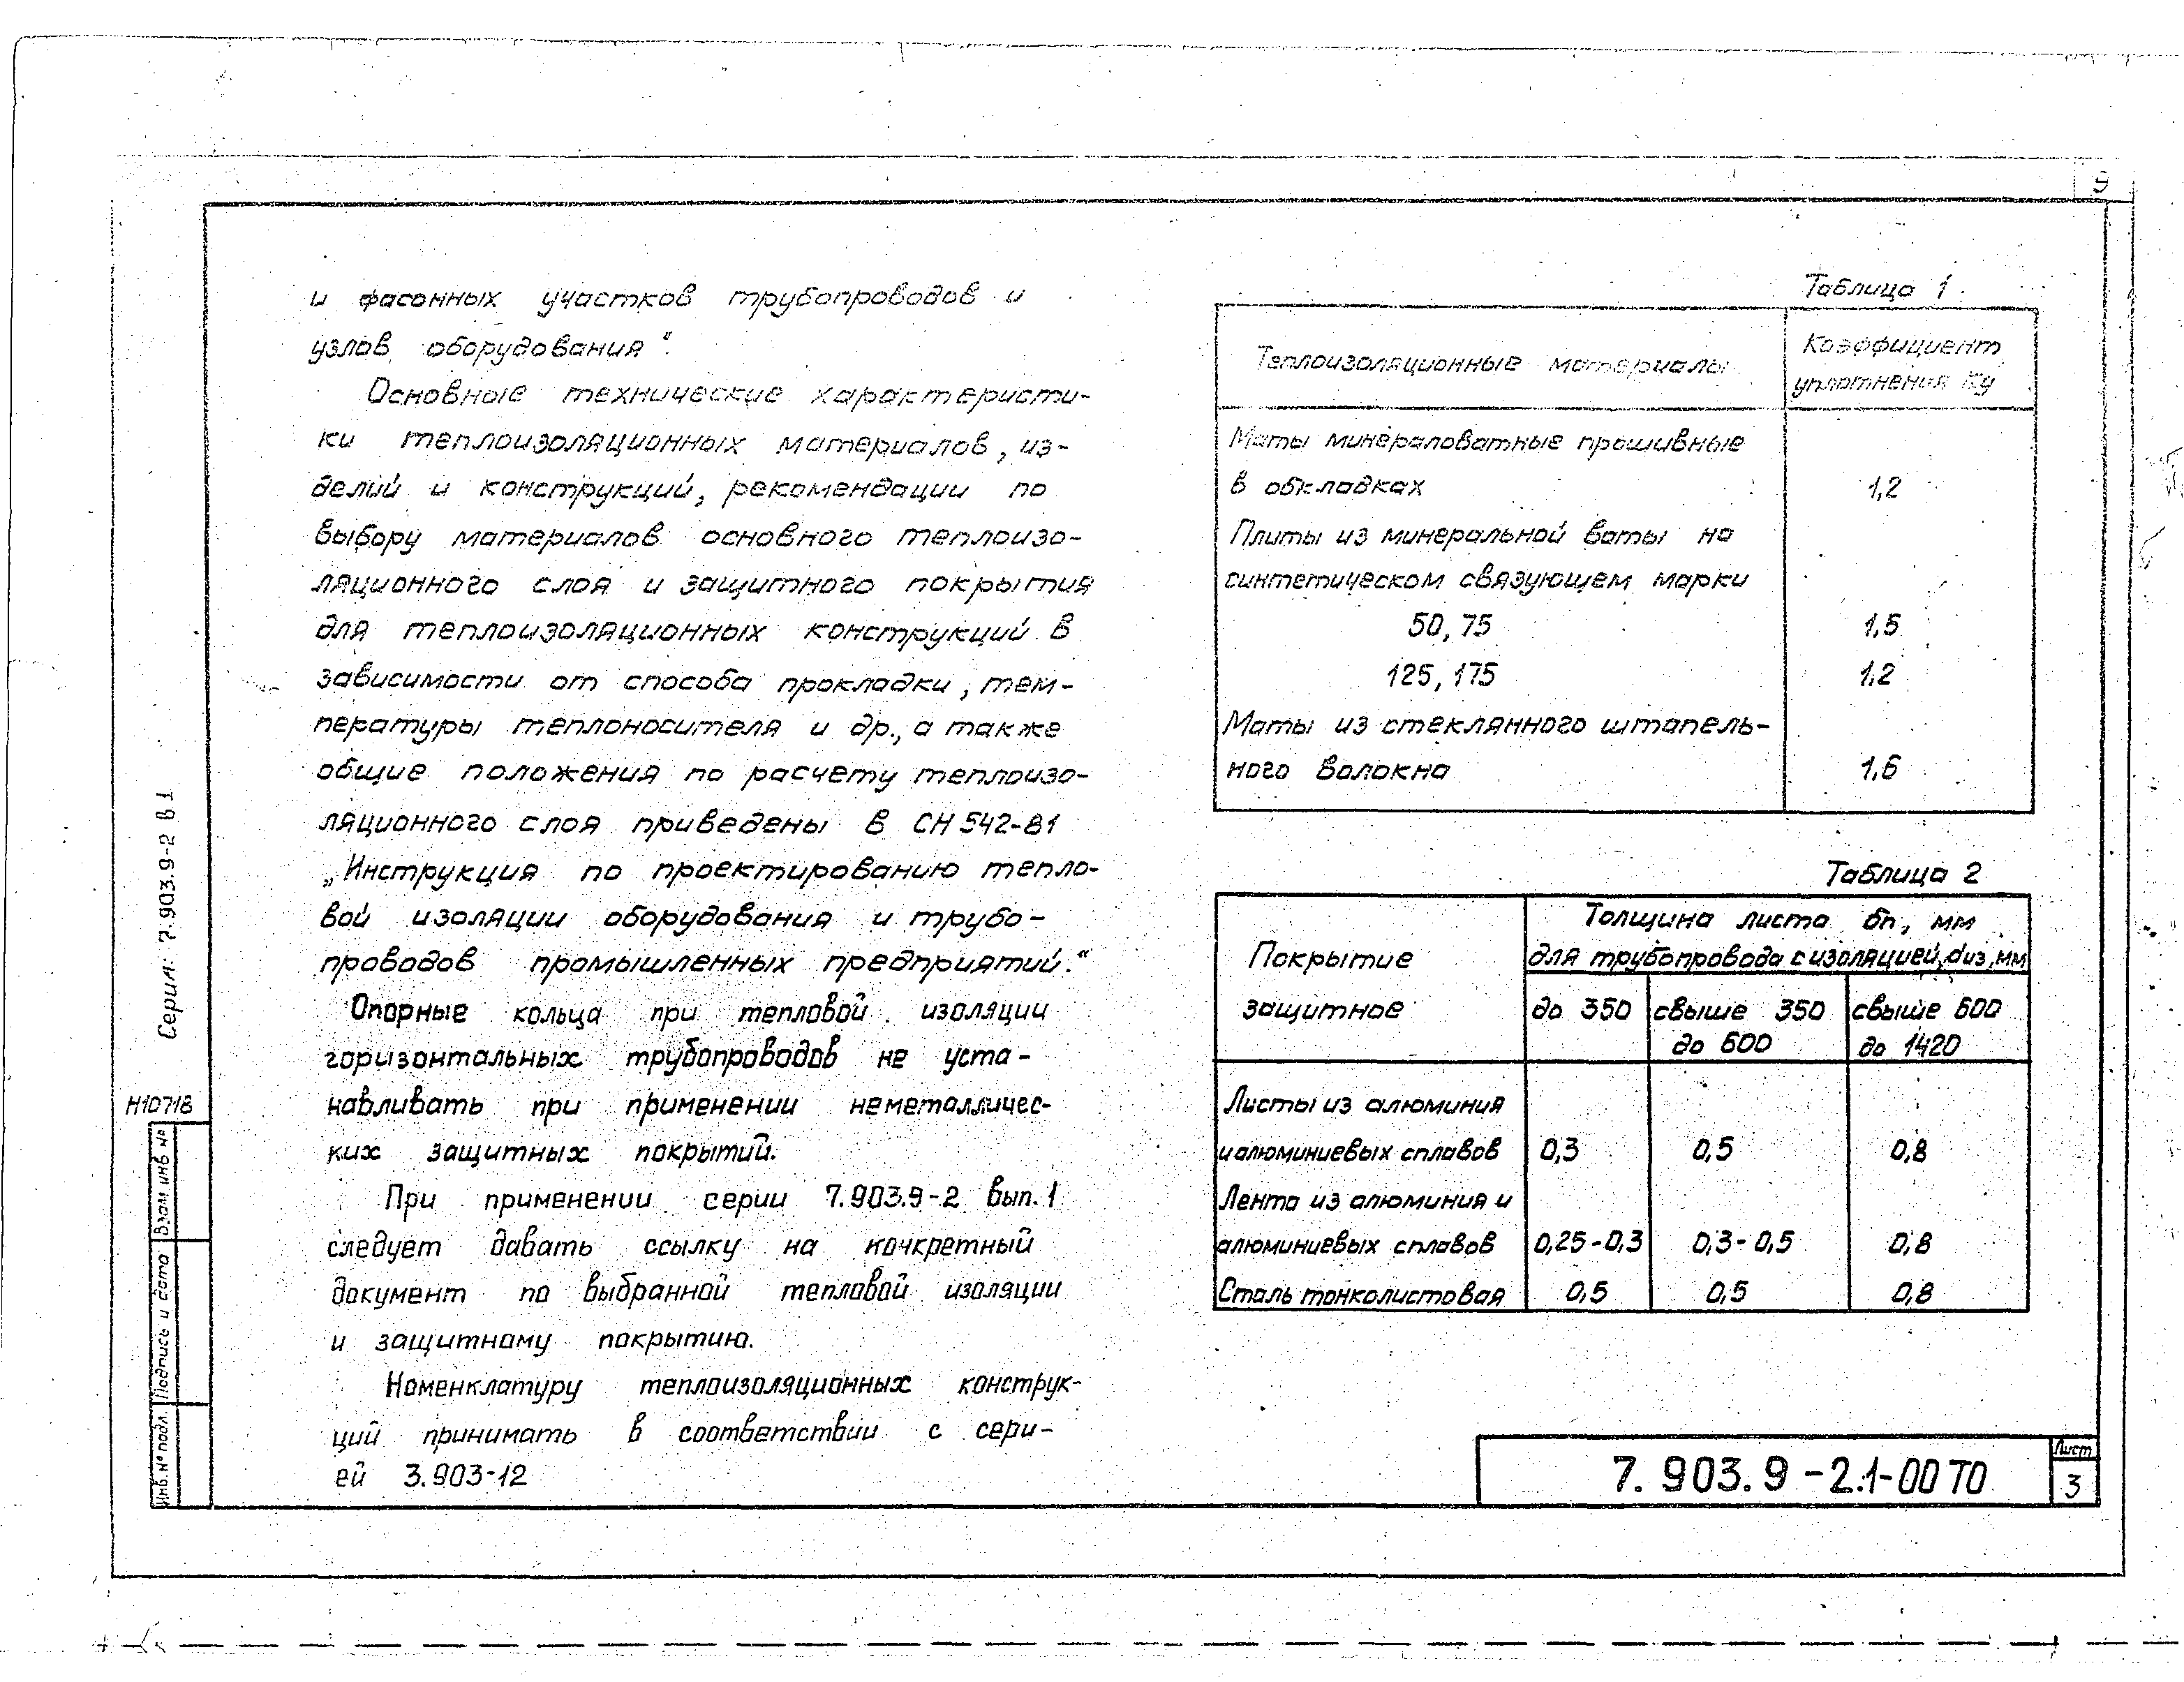 5
и фасонных участков трубопроводов и
узлов оборудования“.
Основные технические характеристи-
ки теплоизоляционных материалов, из-
делий и конструкций, рекомендации по
выбору материалов основного теплоизо-
ляционного слоя и защитного покрытия
для теплоизоляционных конструкций в
зависимости от способа прокладки, тем-
пературы теплоносителя и др., а также
общие положения по расчету теплоизо-
ляционного слоя приведены в СН 542-81
„Инструкция по проектированию тепло-
вой изоляции оборудования и трубо-
проводов промышленных предприятий.“
Опорные кольца при тепловой изоляции
горизонтальных трубопроводов не уста-
навливать при применении неметалличес-
ких защитных покрытий.
При применении серии 7.903.9-2 вып. 1
следует давать ссылку на конкретный
документ по выбранной тепловой изоляции
и защитному покрытию.
Номенклатуру теплоизоляционных конструк-
ций принимать в соответствии с сери-
ей 3.903-12
Таблица 1
Теплоизоляционные материалы
Коэффициент
уплотнения Ку
Маты минераловатные прошивные
в обкладках 1,2
Плиты из минеральной ваты на
синтетическом связующем марки
50, 75 1,5
125, 175 1,2
Маты из стеклянного штапель-
ного волокна 1,6
Таблица 2
Покрытие
защитное
Толщина листа δп, мм
для трубопровода с изоляцией, dиз, мм
до 350 свыше 350 свыше 600
до 600 до 1420
Листы из алюминия
и алюминиевых сплавов 0,3 0,5 0,8
Лента из алюминия и
алюминиевых сплавов 0,25-0,3 0,3-0,5 0,8
Сталь тонколистовая 0,5 0,5 0,8
7.903.9-2.1-00 ТО
Лист
3
Серия: 7.903.9-2 в 1
Н10718
Взам инв №
Подпись и дата
Инв. № подл.